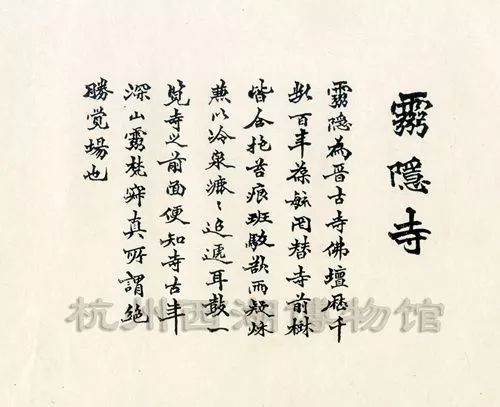 靈隱寺
靈隱為晋古寺佛壇歷千
數百年葆毓罔替寺前樹
皆合抱苔痕班駁而疑
兼以冷泉追遞耳鼓一
覽寺之前面便知寺古年
深山靈梵寂真所謂絕
勝覚場也
杭州西湖博物馆